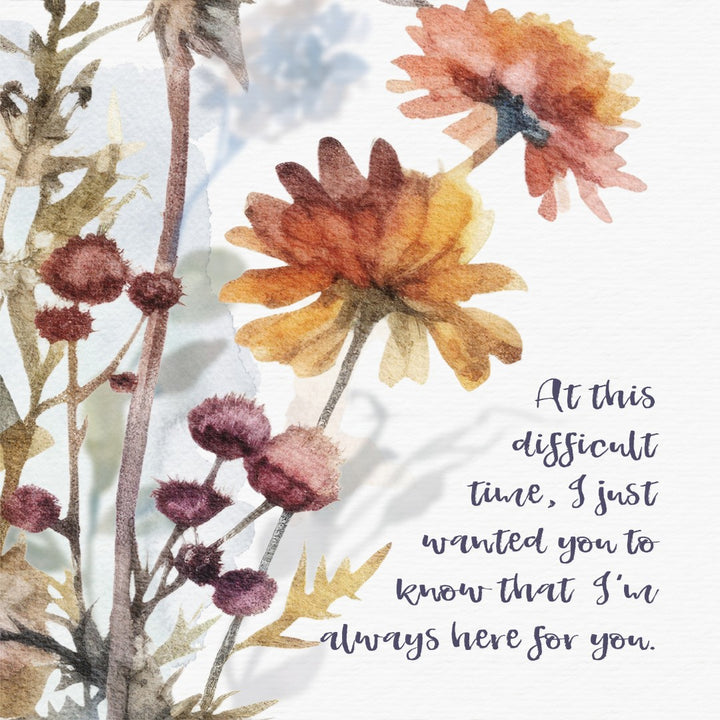 At this
difficult
time, I just
wanted you to
know that I'm
always here for you.